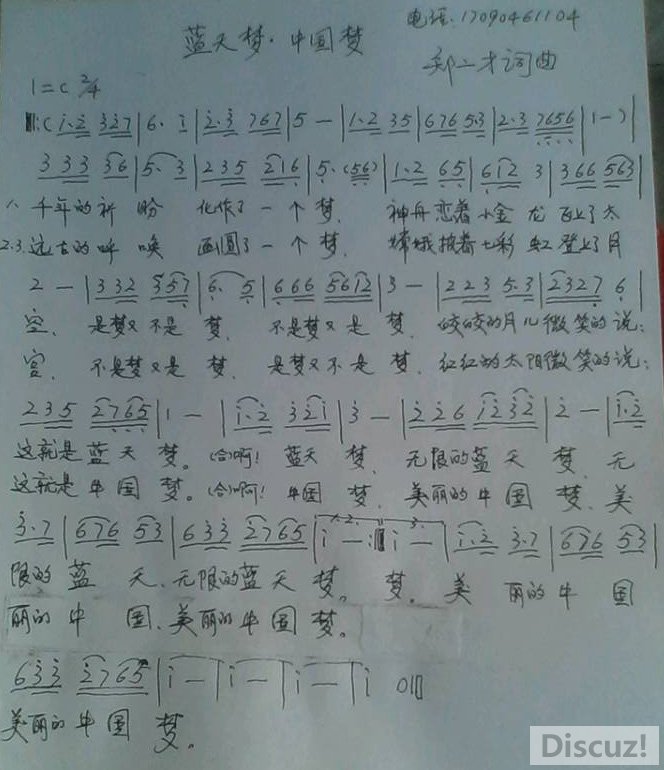 电话:17090461104
蓝天梦·中国梦
郑一才词曲
1=C 2/4
‖:( i·2 327 | 6· i | 2·3 767 | 5 — | 1·2 35 | 676 53 | 2·3 7656 | 1 — ) |
3 3 3 36 | 5· 3 | 2 3 5 216 | 5· (56) | 1·2 65 | 612 3 | 366 563 |
1. 千年的祈 盼 化作了一个梦, 神舟恋着小金龙飞上了太
2.3. 远古的呼唤 画圆了一个梦, 嫦娥披着七彩虹登上了月
2 — | 332 357 | 6· 5 | 666 5612 | 3 — | 223 5·3 | 2327 6 |
空, 是梦又不是梦, 不是梦又是梦, 皎皎的月儿微笑的说:
宫, 不是梦又是梦, 是梦又不是梦, 红红的太阳微笑的说:
235 2765 | 1 — | i·2 32i | 3 — | 226 i232 | 2 — | i·2
这就是蓝天梦。(合)啊! 蓝天梦, 无限的蓝天梦, 无
这就是中国梦。(合)啊! 中国梦, 美丽的中国梦, 美
3·7 | 676 53 | 633 2765 | 1.2. i — :‖ 3. i — | i·2 3·7 | 676 53 |
限的蓝天, 无限的蓝天梦。梦。美丽的中国
丽的中国, 美丽的中国梦。
633 2765 | i — | i — | i — | i 0 ‖
美丽的中国梦。
Discuz!